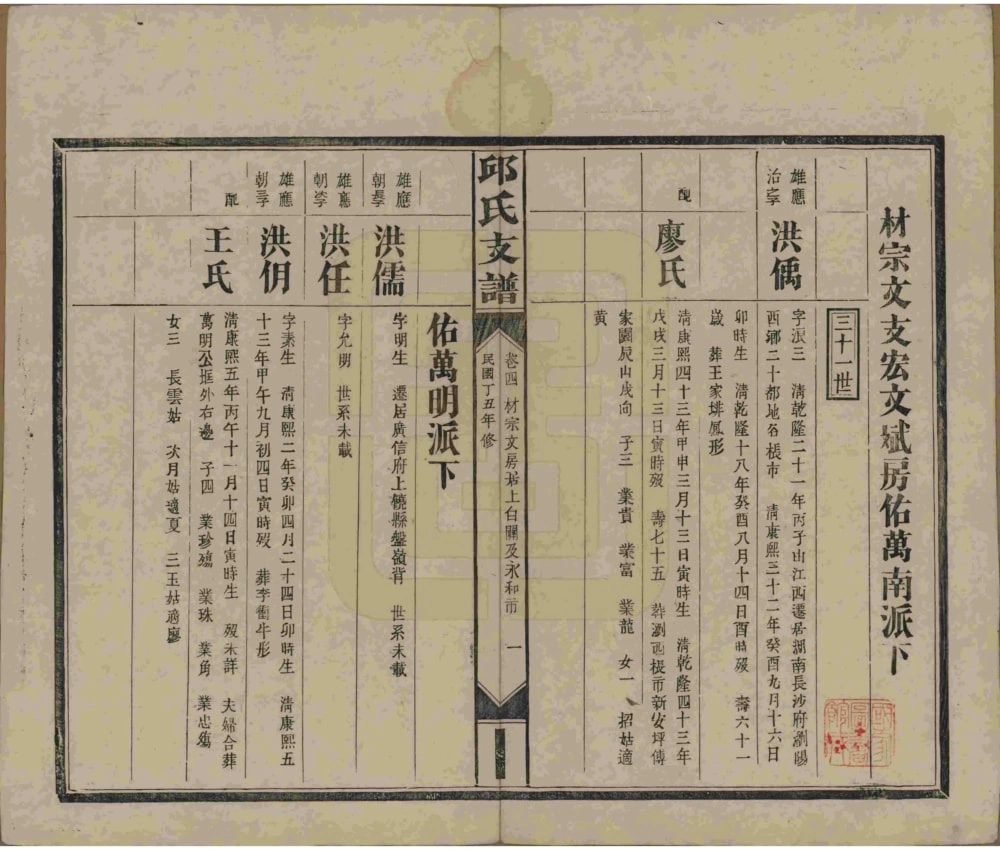 材宗文支宏文斌房佑萬南派下
三十一世
雄應
治字
洪偊
字派三　清乾隆二十一年丙子由江西遷居湖南長沙府瀏陽
西鄉二十都地名棖市　清康熙三十二年癸酉九月十六日
卯時生　清乾隆十八年癸酉八月十四日酉時歿　壽六十一
歲　葬王家塅鳳形
配
廖氏
清康熙四十三年甲申三月十三日寅時生　清乾隆四十三年
戊戌三月十三日寅時歿　壽七十五　葬瀏西棖市新安坪傅
家園辰山戌向　子三　業貴　業富　業龍　女一　招姑適
黃
邱氏支譜
卷四　材宗文房居上白關及永和市　一
民國丁丑年修
佑萬明派下
雄應
朝長子
洪儒
字明生　遷居廣信府上饒縣盤嶺背　世系未載
雄應
朝次子
洪任
字允明　世系未載
雄應
朝三子
洪仴
字素生　清康熙二年癸卯四月二十四日卯時生　清康熙五
十三年甲午九月初四日寅時歿　葬李衢牛形
配
王氏
清康熙五年丙午十一月十四日寅時生　歿未詳　夫婦合葬
萬明公框外右邊　子四　業珍殤　業珠　業角　業忠殤
女三　長雲姑　次月姑適夏　三玉姑適廖